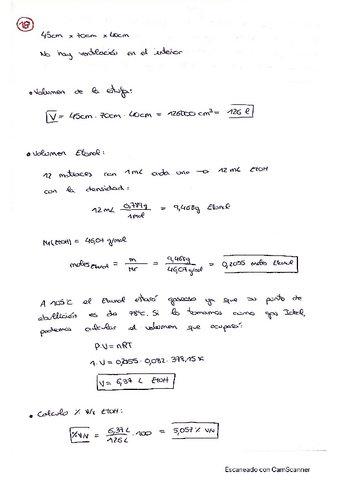 18
45cm x 70cm x 40cm
No hay ventilación en el interior
• Volumen de la estufa:
V = 45cm · 70cm · 40cm = 126000 cm³ = 126 l
• Volumen Etanol:
12 matraces con 1 mL cada uno → 12 mL EtOH
con la densidad:
12 mL · 0,789g / 1mL = 9,468g Etanol
M(EtOH) = 46,07 g/mol
moles Etanol = m / Mr = 9,468g / 46,07 g/mol = 0,2055 moles Etanol
A 105°C el Etanol estará gaseoso ya que su punto de
ebullición es de 78°C. Si lo tomamos como gas Ideal,
podemos calcular el volumen que ocupará:
P·V = nRT
1·V = 0,2055 · 0,082 · 378,15 K
V = 6,37 L EtOH
• Calculo % V/V EtOH:
% V/V = 6,37 L / 126 L · 100 = 5,057 % V/V
Escaneado con CamScanner